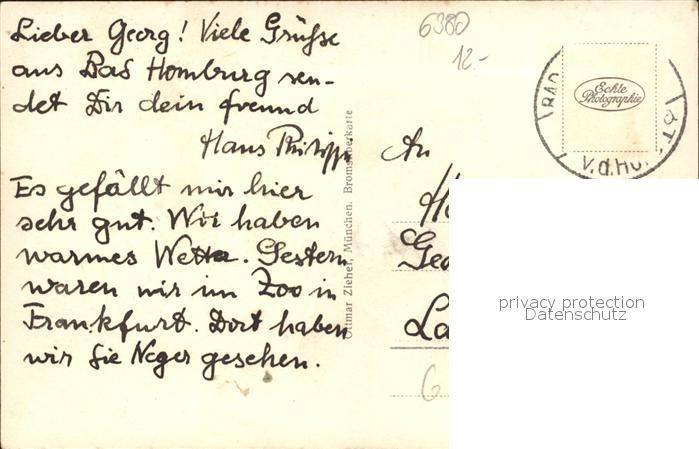 Lieber Georg! Viele Grüße
aus Bad Homburg sen-
det Dir dein freund
Hans Philipp
Es gefällt mir hier
sehr gut. Wir haben
warmes Wetter. Gestern
waren wir im Zoo in
Frankfurt. Dort haben
wir die Neger gesehen.
Ottmar Zieher, München. Bromsilberkarte
6380
12.-
Echte
Photographie
BAD
v.d.HÖ
An
Geo
La
6
privacy protection
Datenschutz